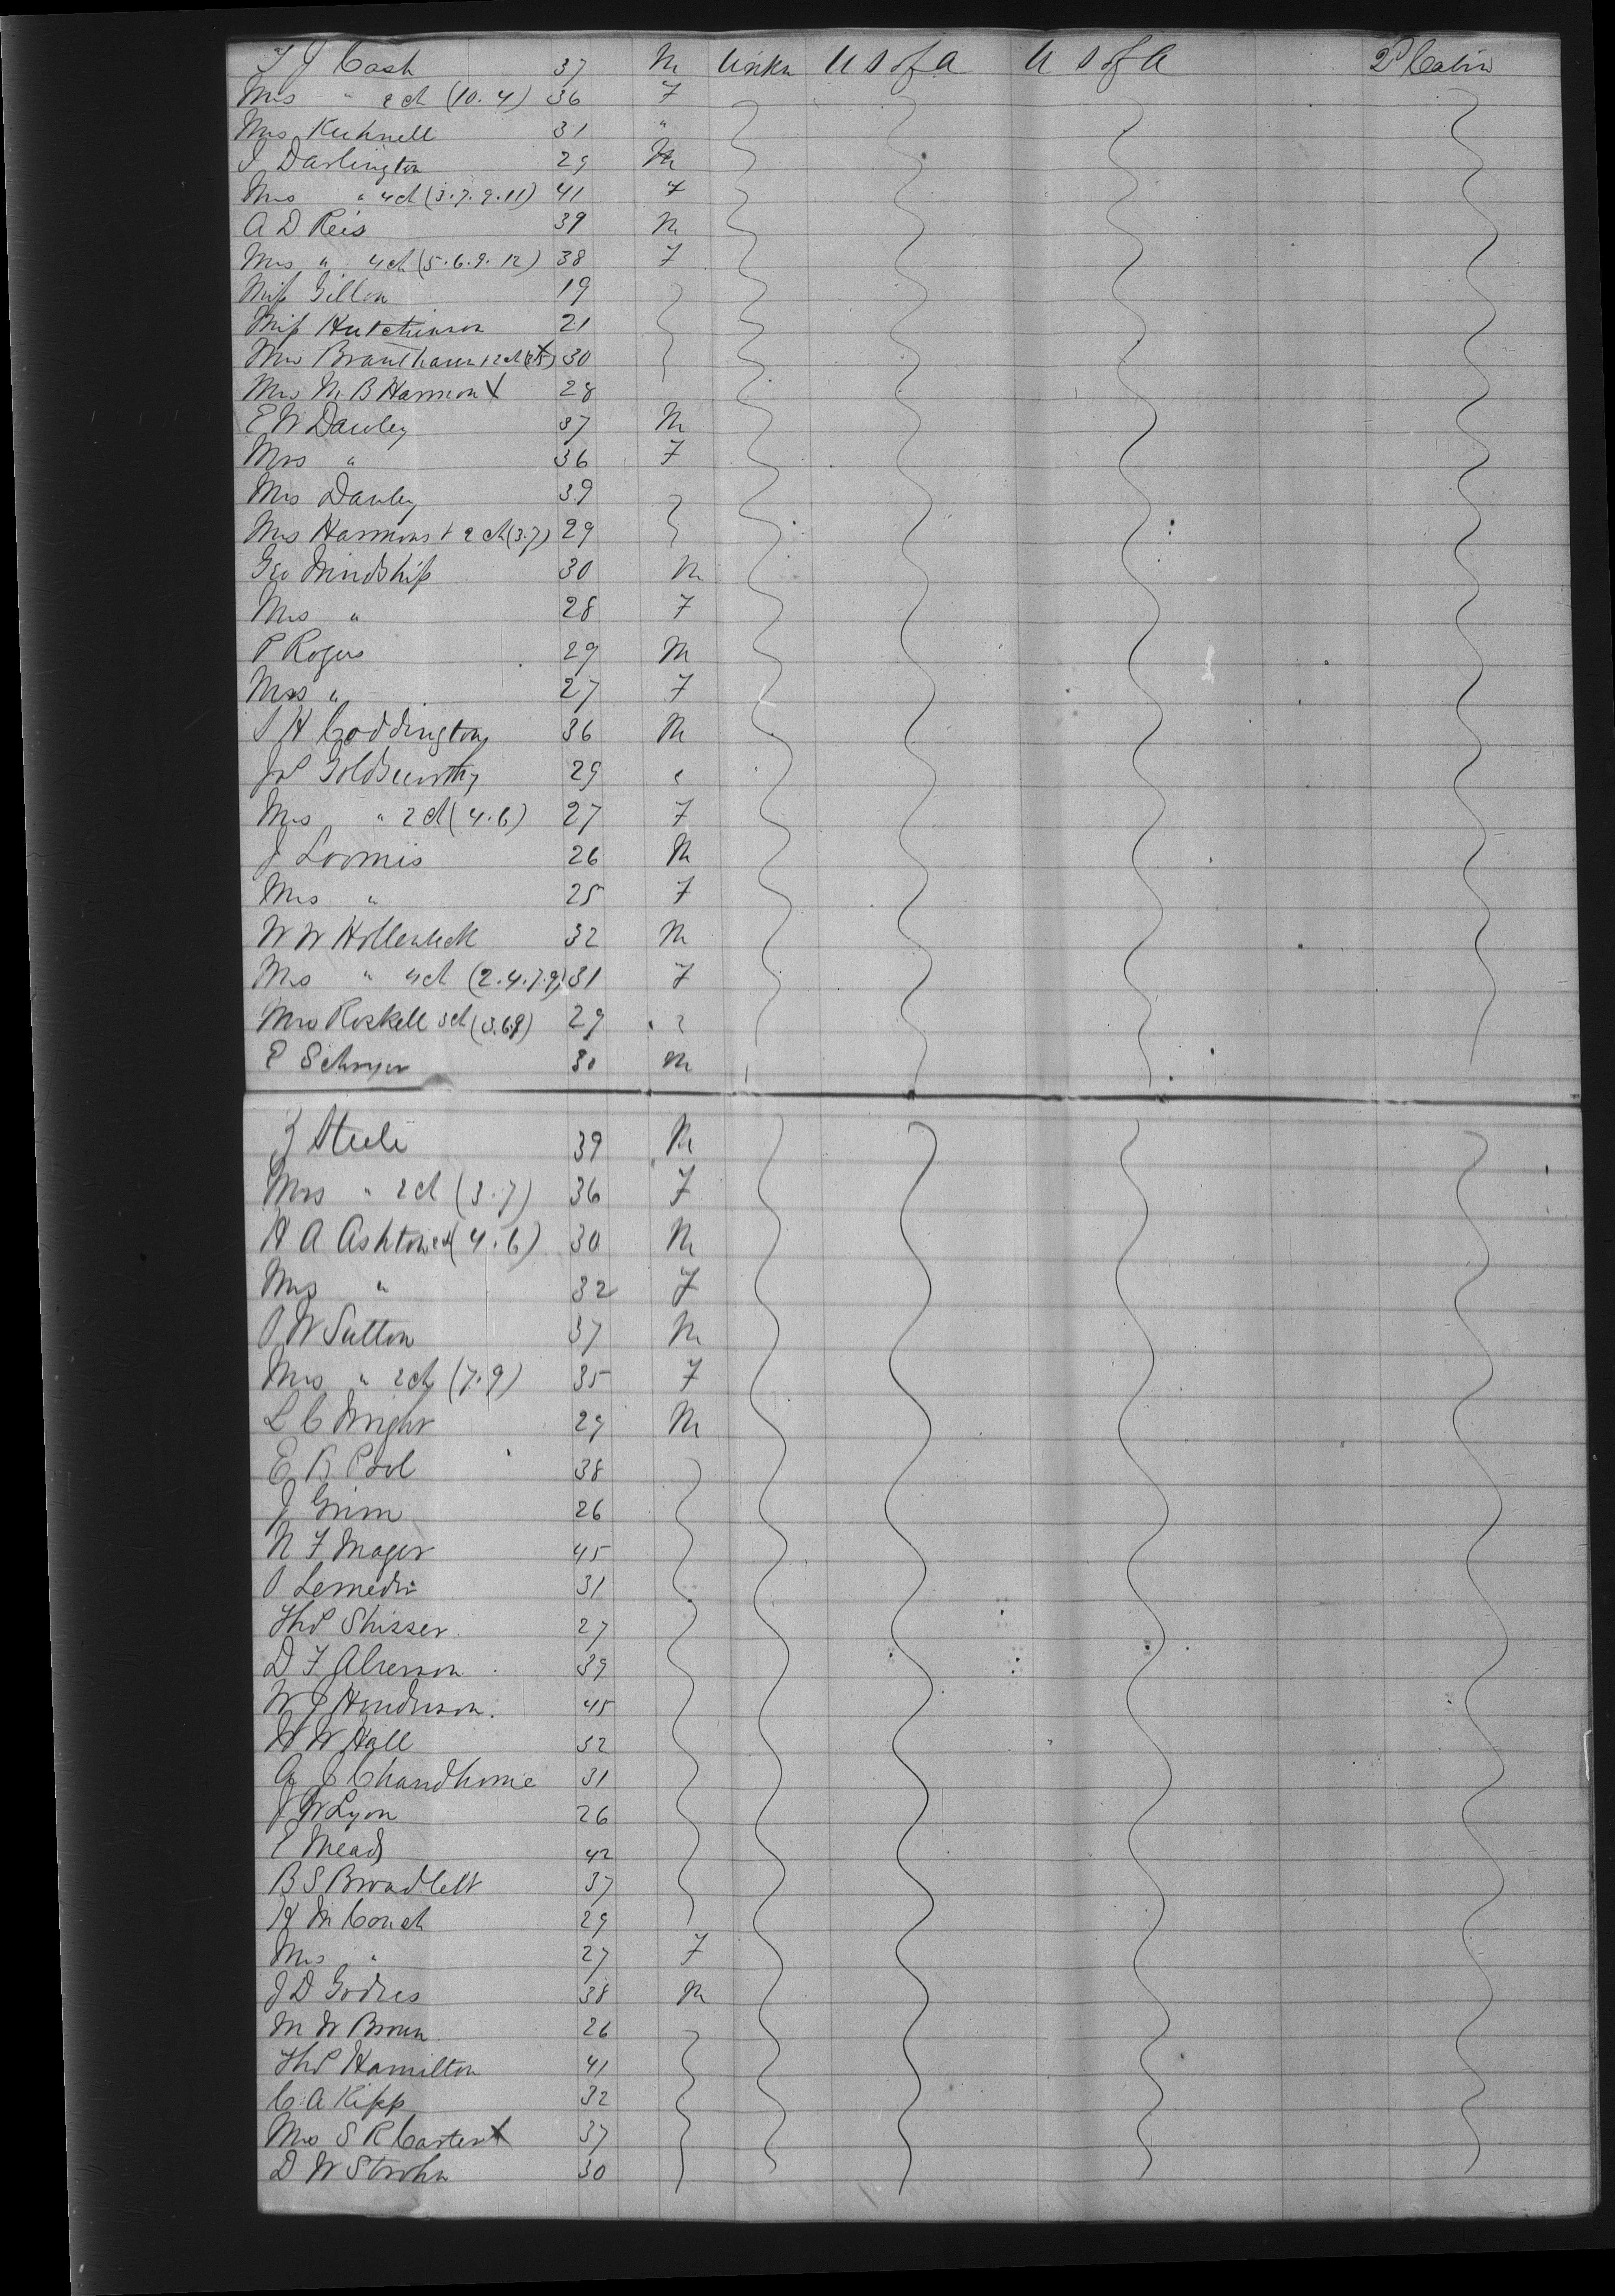 T J Cash 37 M Unkn U S of A U S of A 2d Cabin
Mrs " 2 ch (10.4) 36 F
Mrs Kuhnell 31 "
J Darlington 29 M
Mrs " 4 ch (3.7.9.11) 41 F
A D Reis 39 M
Mrs " 4 ch (5.6.9.12) 38 F
Miss Gillon 19
Miss Hutchinson 21
Mrs 2 ch 30
Mrs M B Harmon X 28
E W Dawley 37 M
Mrs " 36 F
Mrs Dawley 39
Mrs Harmons + 2 ch (3.7) 29
Geo 30 M
Mrs " 28 F
P Rogers 29 M
Mrs " 27 F
S H Coddington 36 M
Jos Goldsworthy 29 "
Mrs " 2 ch (4.6) 27 F
J Loomis 26 M
Mrs " 25 F
W W Hollenbeck 32 M
Mrs " 4 ch (2.4.7.9) 31 F
Mrs Roskell 3 ch (3.6.9) 29
E Schryer 30 M
J Steele 39 M
Mrs " 2 ch (3.7) 36 F
H A Ashton 2 ch (4.6) 30 M
Mrs " 32 F
O W Sutton 37 M
Mrs " 2 ch (7.9) 35 F
L C Wright 29 M
E B Pool 38
J Grim 26
N F Mager 45
31
Thos Shisser 27
D F Alverson 39
W J Henderson. 45
H W Hall 32
31
J W Lyon 26
E Mead 42
B S 37
H M Couch 29
Mrs " 27 F
J D Godres 38 M
M W Brown 26
Thos Hamilton 41
C A Kipp 32
Mrs S R Carter X 37
D W Strohn 30